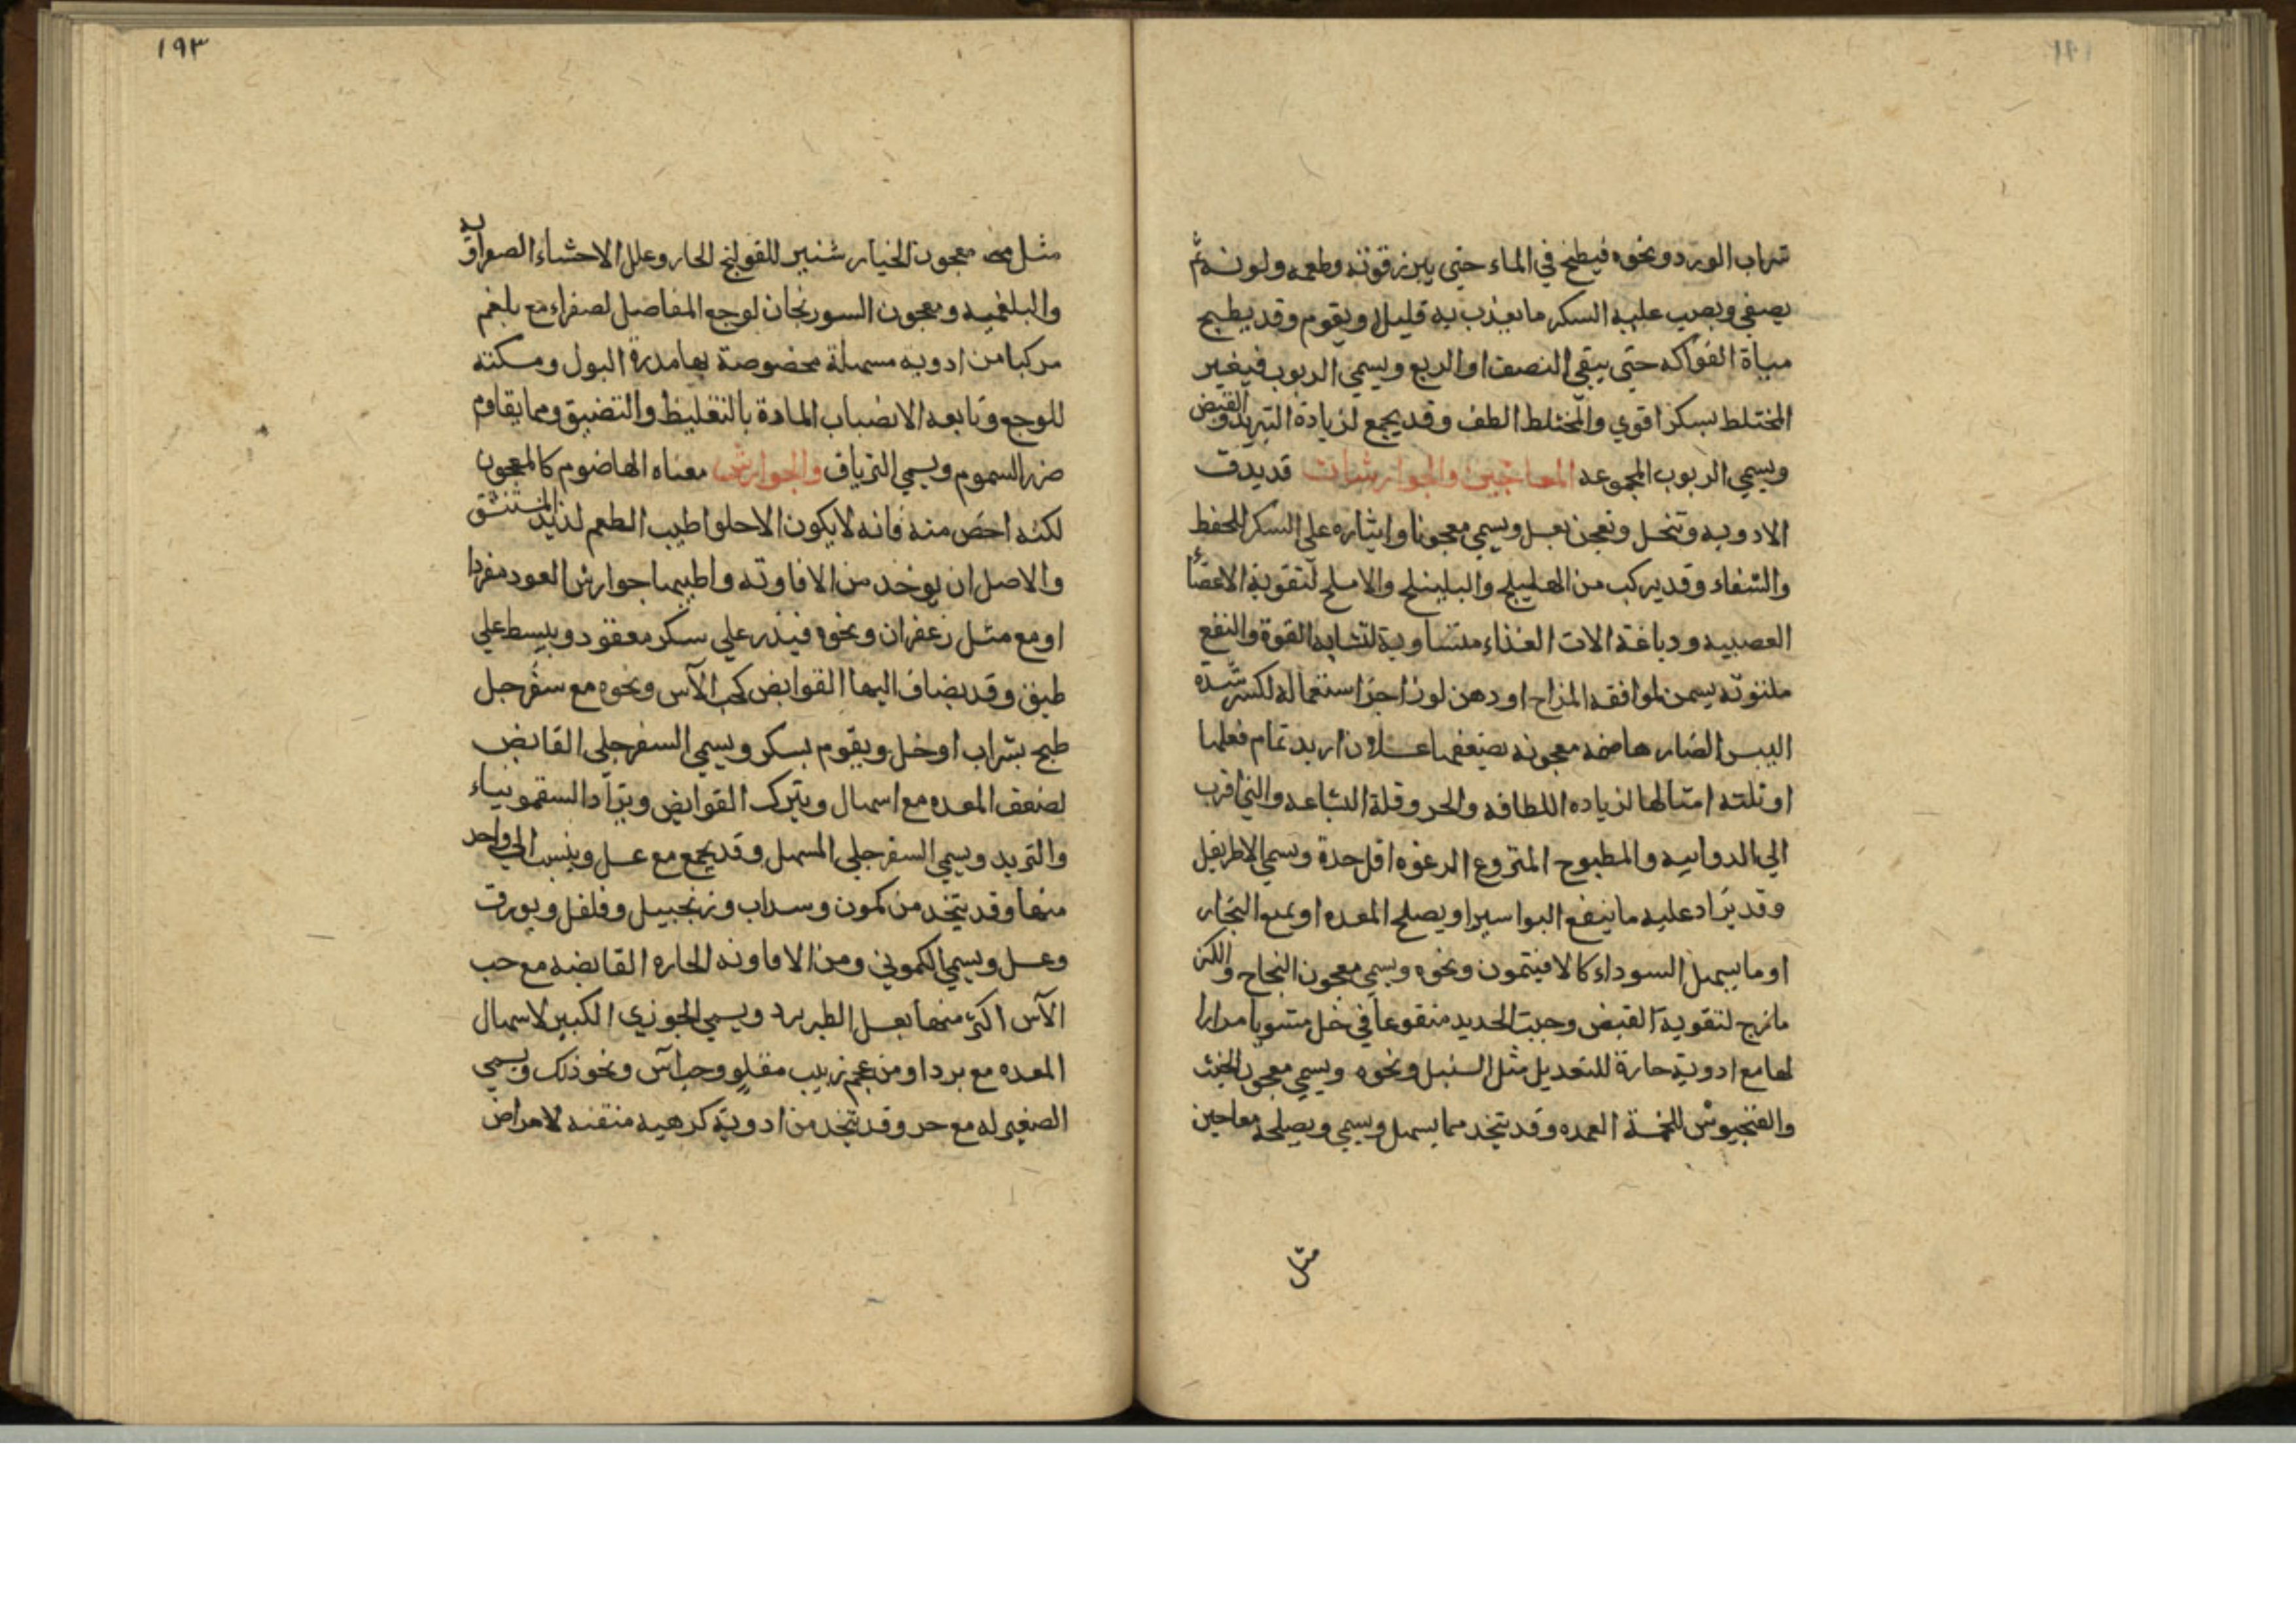 شراب الورد ونحوه فيطبخ في الماء حتي يبرز قوته وطعمه ولونه ثم
يصفي ويصب عليه السكر ما يعذب به قليلا ويقوم وقد يطبخ
مياة الفواكه حتي يبقي النصف او الربع ويسمي الربوب فيغير
المختلط بسكر اقوي والمختلط الطف وقد يجمع لزيادة التبريد والقبض
ويسمي الربوب المجموعه المعاجين والجوارشات قد يدق
الادويه وتنخل وتعجن بعسل ويسمي معجونا وايثاره علي السكر للحفظ
والشفاء وقد يركب من الهليلج والبليلج والاملج لتقوية الاعضاء
العصبيه ودباغة الات الغذاء متساوية لتشابه القوة والنفع
ملتوته بسمن لموافقه المزاج او دهن لوز اجزا استعماله لكسر شدة
اليبس الضار هاضمه معجونه بضعفها عسلا ان اريد تمام فعلها
او ثلثه امثالها لزياده اللطافه والحر وقلة البشاعه والني اقرب
الي الدوائيه والمطبوح المنزوع الرغوه اقل حدة ويسمي الاطريفل
وقد يزاد عليه ما ينفع البواسير او يصلح المعده او يمنع البخار
او ما يسهل السوداء كالافيتمون ونحوه ويسمي معجون النجاح
مانرج لتقوية القبض وخبث الحديد منقوعا في خل مشويا مرارا
لها مع ادوية حارة للتعديل مثل السنبل ونحوه ويسمي معجون الخبث
والفنجيوش للخمسة العمده وقد يتخد مما يسهل ويسمي ويصلحه معاجين
مثل
١٩٣
مثل معجون الخيار شنبر للقولنج الحار وعلل الاحشاء الصفراويه
والبلغميه ومعجون السورنجان لوجع المفاصل لصفراء مع بلغم
مركبا من ادويه مسهلة مخصوصة بها مدرة البول ومسكنه
للوجع وتابعه الانصباب المادة بالتغليظ والتضيق ومما يقاوم
ضرر السموم ويسمي الترياق والجوارش معناه الهاضوم كالمعجون
لكنه اخص منه فانه لا يكون الا حلوا طيب الطعم لذيذ المستنشق
والاصل ان يوخد من الافاوته واطيبها جوارش العود مفردا
او مع مثل زعفران ونحوه فيذر علي سكر معقود ويبسط علي
طبق وقد يضاف اليها القوابض كحب الآس ونحوه مع سفرجل
طبح بشراب او خل ويقوم بسكر ويسمي السفرجلي القابض
لضعف المعده مع اسهال ويترك القوابض ويزاد السقمونياء
والتربد ويسمي السفرجلي المسهل وقد يجمع مع عسل وينسب الي واحد
منها وقد يتخد من كمون وسداب وزنجبيل وفلفل وبورق
وعسل ويسمي الكموني ومن الافاونه الحاره القابضه مع حب
الآس اكثر منها بعسل الطبرزد ويسمي الجوزي الكبير لاسهال
المعده مع برد او من عجم زبيب مقلو وحب آس ونحو ذلك ويسمي
الصغير له مع حر وقد يتخد من ادوية كرهيه منتنه لامراض